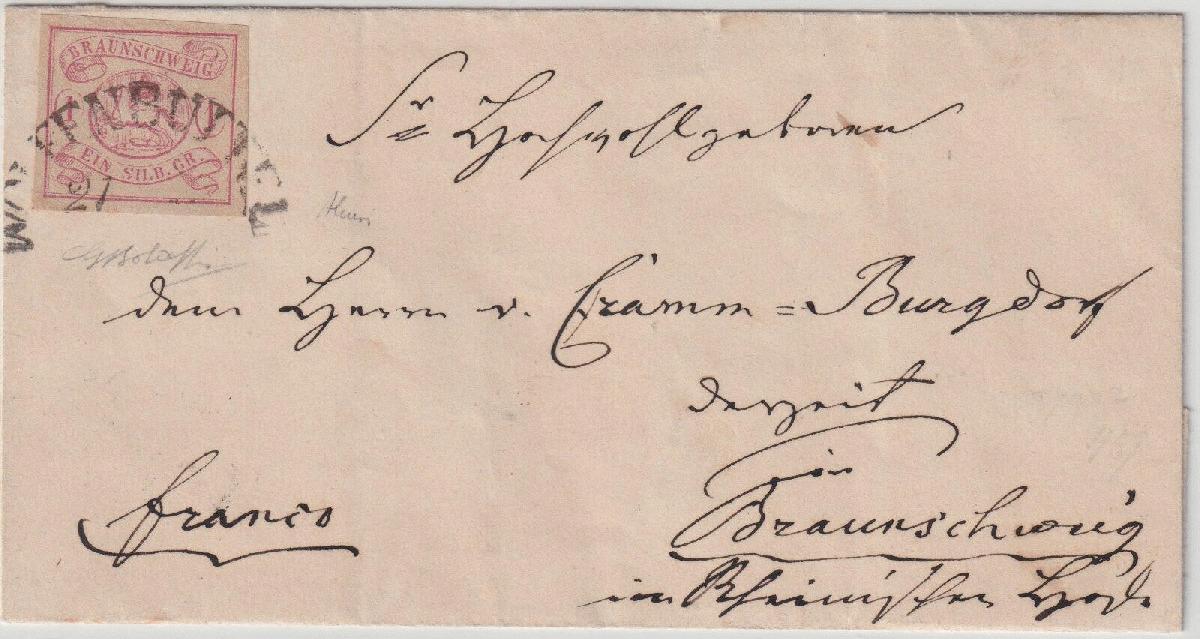 BRAUNSCHWEIG
EIN SILB. GR.
WOLFENBUTTEL
21
Sr Hochwohlgeboren
dem Herrn v. Cramm=Burgdorf
derzeit
in
franco
Braunschweig
im Rheinischen Hofe